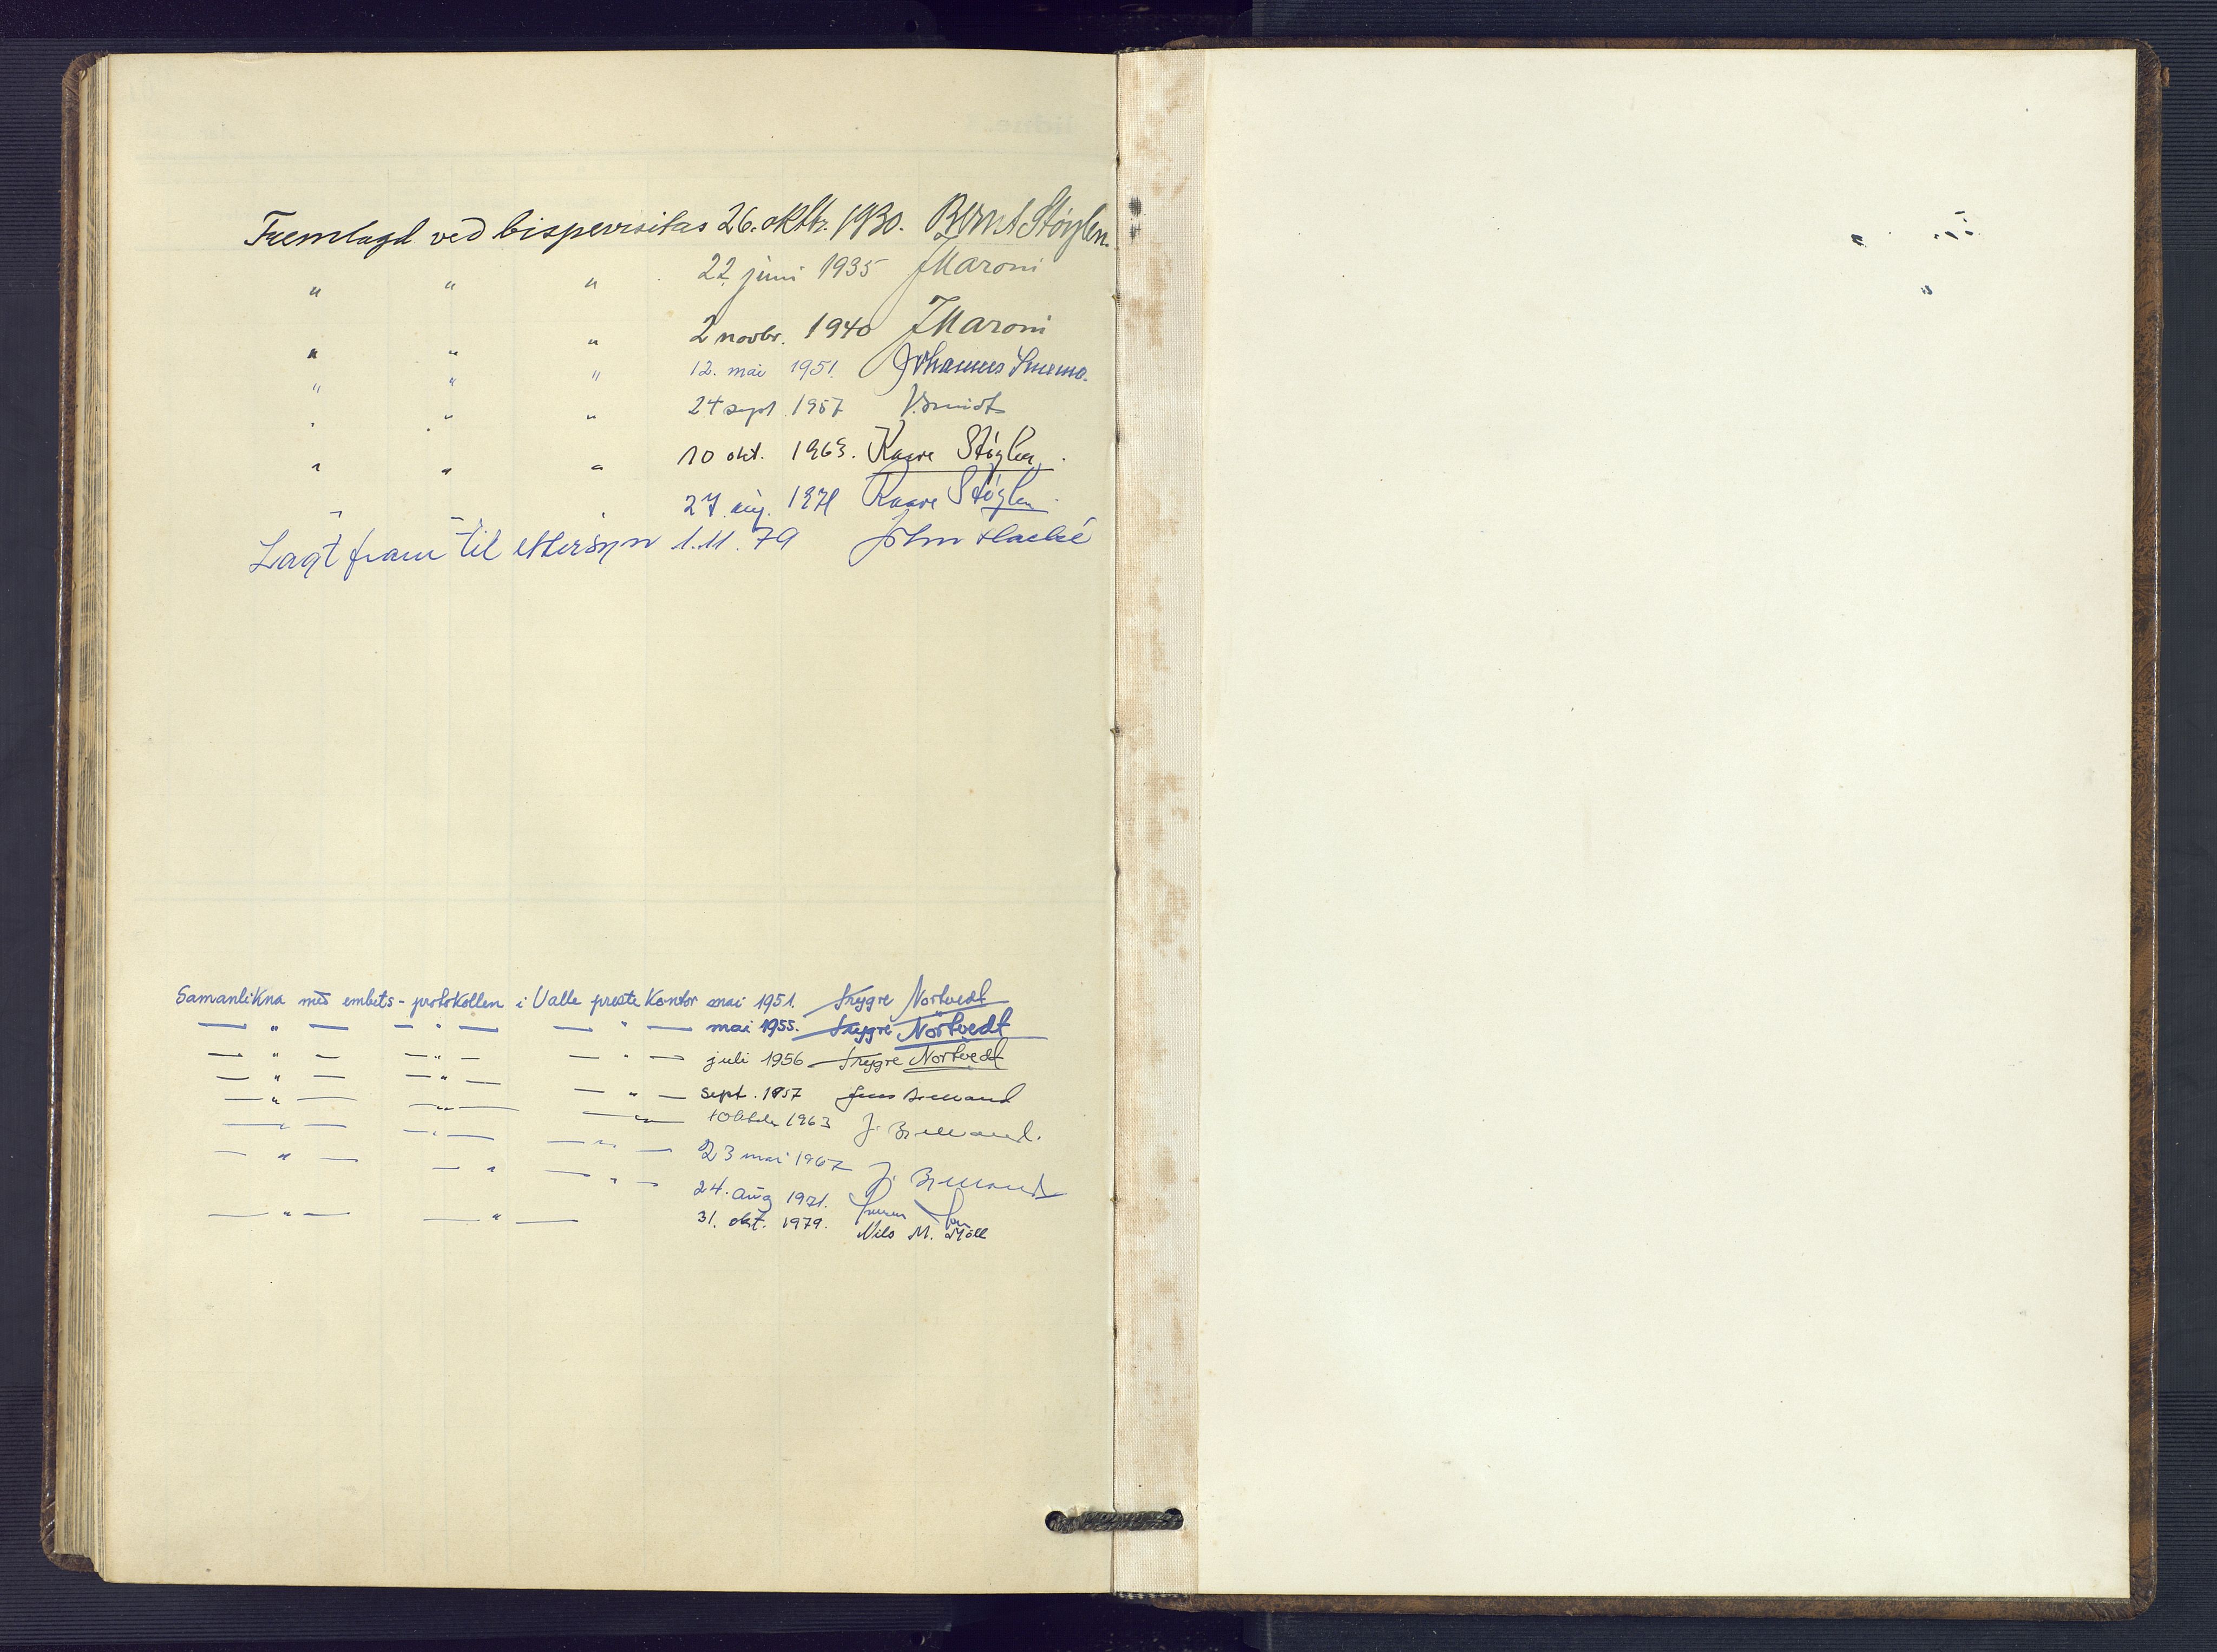 Fremlagd ved bispevisitas 26. oktbr. 1930. Bernt Støylen.
" " " 22. juni 1935 J Maroni
" " " 2 novbr. 1940 J Maroni
" " " 12. mai 1951. Johannes Smemo.
" " " 24 sept. 1957 J. Smidt
" " " 10 okt. 1963. Kaare Støylen.
" " " 27 aug. 1971 Kaare Støylen.
Lagt fram til ettersyn 1.11.79
Samanlikna med embets-protokollen i Valle prestekontor mai 1951. Trygve Nortvedt
— " — — " — — " — mai 1955. Trygve Nortvedt
— " — — " — — " — juli 1956 Trygve Nortvedt
— " — — " — — " — sept. 1957
— " — — " — — " — 1963
— " — — " — — " — 23 mai 1967
— " — — " — — " — 24. aug 1971.
— " — — " — 31. okt. 1979. Nils M. Høll